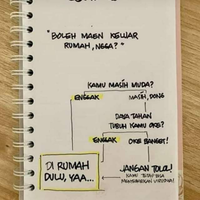 "BOLEH MAEN KELUAR
RUMAH, NGGA?"
KAMU MASIH MUDA?
ENGGAK
MASIH, DONG
DAYA TAHAN
TUBUH KAMU OKE?
ENGGAK
OKE BANGET!
DI RUMAH
DULU, YAA...
JANGAN TOLOL!
KAMU TETAP BISA
MENYEBARKAN VIRUSNYA!